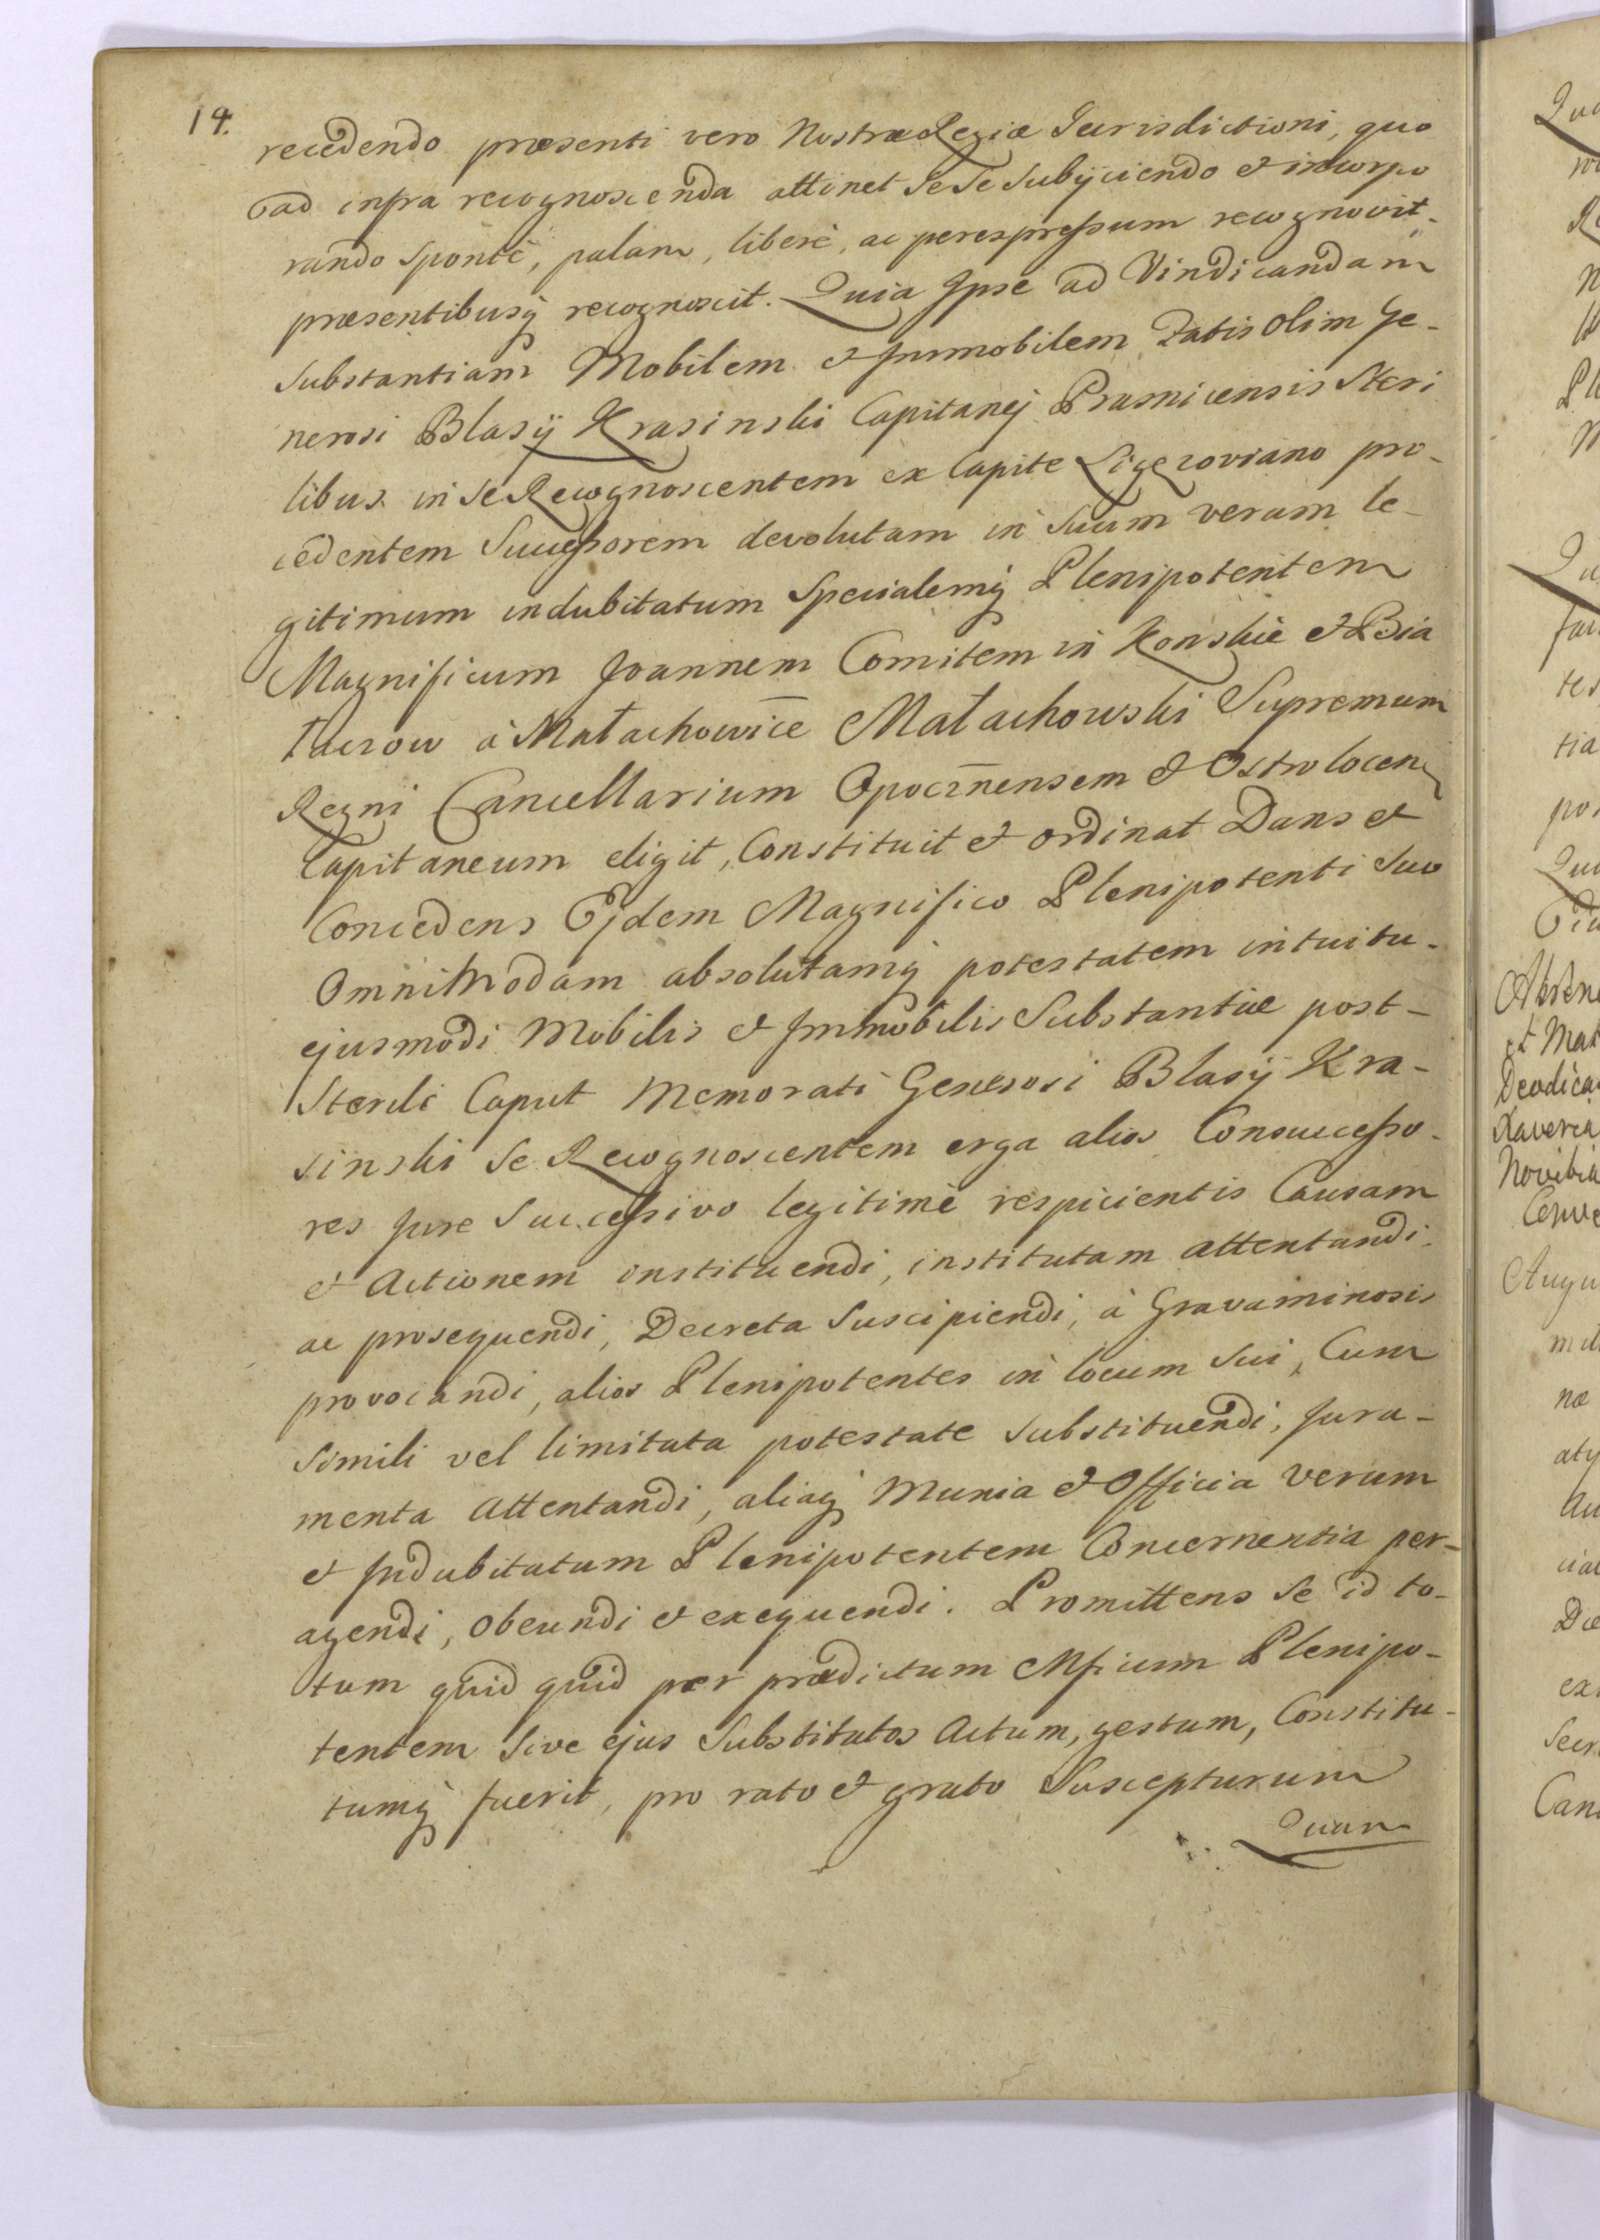 14.
recedendo præsenti vero Nostræ Regiæ Jurisdictioni, quo
ad infra recognoscenda attinet Se Se Subijciendo & incorpo
rando Sponte, palam, libere, ac per expressum recognovit
præsentibusq recognoscit. Quia Ipse ad Vindicandam
Substantiam Mobilem & Immobilem Fatis olim Ge-
nerosi Blasij Krasinski Capitanej Prasnicensis Steri
libus in Se Recognoscentem ex Capite Ligezoviano pro-
cedentem Successorem devolutam in Suum verum le-
gitimum indubitatum Specialemq Plenipotentem
Magnificum Joannem Comitem in Konskie & Bia
łaczow à Małachowice Małachowski Supremum
Regni Cancellarium Opocznensem & Ostrolocen
Capitaneum eligit, Constituit & ordinat Dans &
Concedens Ejdem Magnifico Plenipotenti Suo
Omnimodam absolutamq potestatem intuitu-
ejusmodi Mobilis & Immobilis Substantiæ post-
Sterili Caput Memorati Generosi Blasij Kra-
sinski Se Recognoscentem erga alios Consuccesso-
res Jure Successivo legitime respicientis Causam
& Actionem instituendi, institutam attentandi
ac prosequendi, Decreta Suscipiendi, à Gravaminosis
provocandi, alios Plenipotentes in locum Sui, Cum
Simili vel limitata potestate Substituendi, Jura-
menta attentandi, aliaq Munia & Officia verum
& Indubitatum Plenipotentem Concernentia per-
agendi, obeundi & exequendi. Promittens Se id to-
tum quid quid per prædictum Mficum Plenipo-
tentem Sive ejus Substitutos Actum, gestum, Constitu-
tumq fuerit, pro rato & grato Suscepturum
Quam